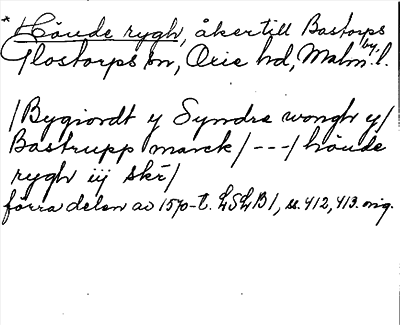 * Höude rygh, åker till Bastorps by,
Glostorps sn, Oxie hd, Malm. l.
/Bygiordt y Syndre wongh y/
Bastrupp marck/ - - - / höude
rygh iij sk̄r/
förra delen av 1570-t. LSLB 1, s. 412, 413. orig.